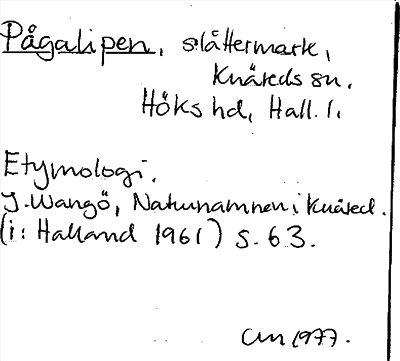 Pågalipen, slåttermark,
Knäreds sn.
Höks hd, Hall. l.
Etymologi.
J. Wangö, Naturnamnen i Knäred.
(i: Halland 1961) s. 63.
1977.